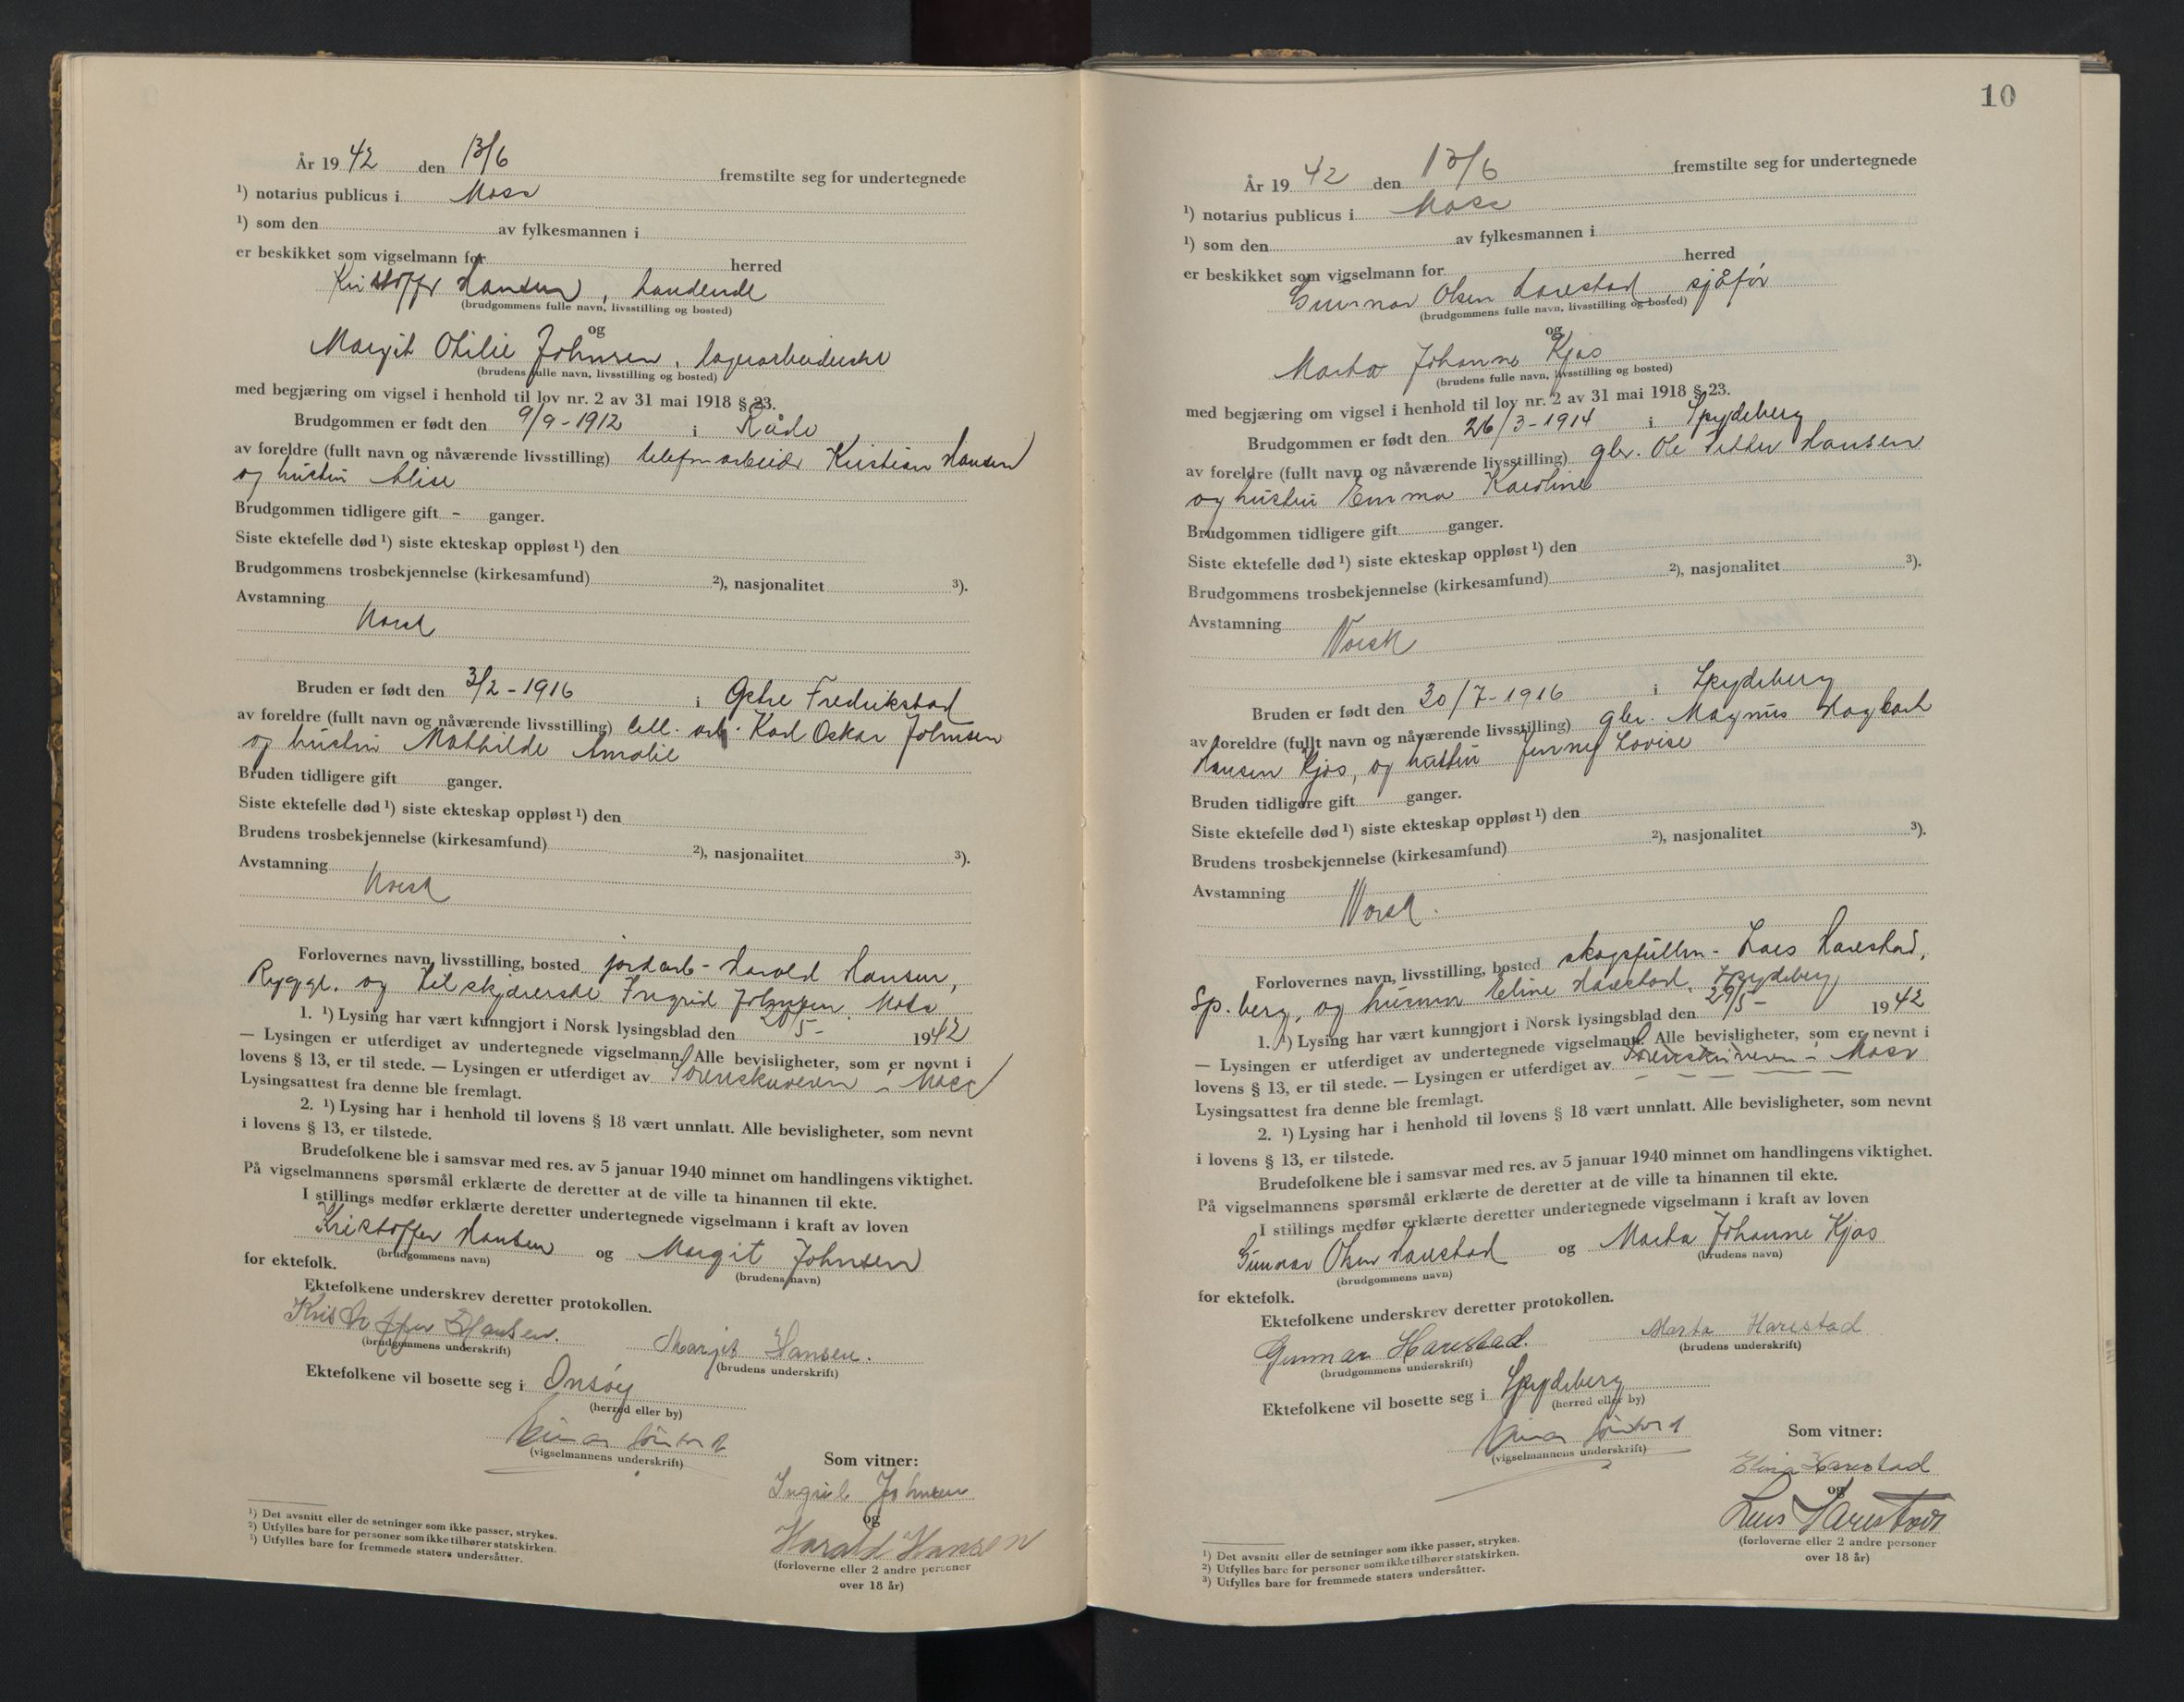 År 1942 den 13/6 fremstilte seg for undertegnede
¹) notarius publicus i Moss
¹) som den av fylkesmannen i
er beskikket som vigselmann for herred
Kristoffer Hansen,
(brudgommens fulle navn, livsstilling og bosted)
og
Margit Otilie Johnsen, lagerarbeiderske
(brudens fulle navn, livsstilling og bosted)
med begjæring om vigsel i henhold til lov nr. 2 av 31 mai 1918 § 23.
Brudgommen er født den 9/9-1912 i Råde
av foreldre (fullt navn og nåværende livsstilling) telefonarbeider Kristian Hansen
og hustru Alise
Brudgommen tidligere gift - ganger.
Siste ektefelle død ¹) siste ekteskap oppløst ¹) den
Brudgommens trosbekjennelse (kirkesamfund) ²), nasjonalitet ³).
Avstamning
Norsk
Bruden er født den 3/2-1916 i Gstre Fredrikstad
av foreldre (fullt navn og nåværende livsstilling) cell. arb. Karl Oskar Johnsen
og hustru Mathilde Amalie
Bruden tidligere gift ganger.
Siste ektefelle død ¹) siste ekteskap oppløst ¹) den
Brudens trosbekjennelse (kirkesamfund) ²), nasjonalitet ³).
Avstamning
Norsk
Forlovernes navn, livsstilling, bosted jordarb- Harald Hansen,
Rygge. og tilskjærerske Ingrid Johnsen, Moss
1. ¹) Lysing har vært kunngjort i Norsk lysingsblad den 20/5- 1942
— Lysingen er utferdiget av undertegnede vigselmann. Alle bevisligheter, som er nevnt i
lovens § 13, er til stede. — Lysingen er utferdiget av Sorenskriveren i Moss
Lysingsattest fra denne ble fremlagt.
2. ¹) Lysing har i henhold til lovens § 18 vært unnlatt. Alle bevisligheter, som nevnt
i lovens § 13, er tilstede.
Brudefolkene ble i samsvar med res. av 5 januar 1940 minnet om handlingens viktighet.
På vigselmannens spørsmål erklærte de deretter at de ville ta hinannen til ekte.
I stillings medfør erklærte deretter undertegnede vigselmann i kraft av loven
Kristoffer Hansen og Margit Johnsen
(brudgommens navn) (brudens navn)
for ektefolk.
Ektefolkene underskrev deretter protokollen.
Kristoffer Hansen. Margit Hansen.
(brudgommens underskrift) (brudens underskrift)
Ektefolkene vil bosette seg i Onsøy
(herred eller by)
(vigselmannens underskrift)
Som vitner:
Ingrid Johnsen
og
Harald Hansen
(forloverne eller 2 andre personer
over 18 år)
¹) Det avsnitt eller de setninger som ikke passer, strykes.
²) Utfylles bare for personer som ikke tilhører statskirken.
³) Utfylles bare for fremmede staters undersåtter.
10
År 1942 den 13/6 fremstilte seg for undertegnede
¹) notarius publicus i Moss
¹) som den av fylkesmannen i
er beskikket som vigselmann for herred
Gunnar Olsen Harestad sjåfør
(brudgommens fulle navn, livsstilling og bosted)
og
Marta Johanne Kjos
(brudens fulle navn, livsstilling og bosted)
med begjæring om vigsel i henhold til lov nr. 2 av 31 mai 1918 § 23.
Brudgommen er født den 26/3-1914 i Spydeberg
av foreldre (fullt navn og nåværende livsstilling) gbr. Ole Petter Hansen
og hustru Emma Karoline
Brudgommen tidligere gift ganger.
Siste ektefelle død ¹) siste ekteskap oppløst ¹) den
Brudgommens trosbekjennelse (kirkesamfund) ²), nasjonalitet ³).
Avstamning
Norsk
Bruden er født den 30/7-1916 i Spydeberg
av foreldre (fullt navn og nåværende livsstilling) gbr. Magnus Hagbart
Hansen Kjos, og hustru Jenny Lovise
Bruden tidligere gift ganger.
Siste ektefelle død ¹) siste ekteskap oppløst ¹) den
Brudens trosbekjennelse (kirkesamfund) ²), nasjonalitet ³).
Avstamning
Norsk.
Forlovernes navn, livsstilling, bosted skogsfullm- Lars Harestad,
Sp.berg, og husmor Eline Harestad, Spydeberg
1. ¹) Lysing har vært kunngjort i Norsk lysingsblad den 29/5- 1942
— Lysingen er utferdiget av undertegnede vigselmann. Alle bevisligheter, som er nevnt i
lovens § 13, er til stede. — Lysingen er utferdiget av Sorenskriveren i Moss
Lysingsattest fra denne ble fremlagt.
2. ¹) Lysing har i henhold til lovens § 18 vært unnlatt. Alle bevisligheter, som nevnt
i lovens § 13, er tilstede.
Brudefolkene ble i samsvar med res. av 5 januar 1940 minnet om handlingens viktighet.
På vigselmannens spørsmål erklærte de deretter at de ville ta hinannen til ekte.
I stillings medfør erklærte deretter undertegnede vigselmann i kraft av loven
Gunnar Olsen Harestad og Marta Johanne Kjos
(brudgommens navn) (brudens navn)
for ektefolk.
Ektefolkene underskrev deretter protokollen.
Gunnar Harestad. Marta Harestad
(brudgommens underskrift) (brudens underskrift)
Ektefolkene vil bosette seg i Spydeberg
(herred eller by)
(vigselmannens underskrift)
Som vitner:
Eline Harestad
og
Lars Harestad
(forloverne eller 2 andre personer
over 18 år)
¹) Det avsnitt eller de setninger som ikke passer, strykes.
²) Utfylles bare for personer som ikke tilhører statskirken.
³) Utfylles bare for fremmede staters undersåtter.